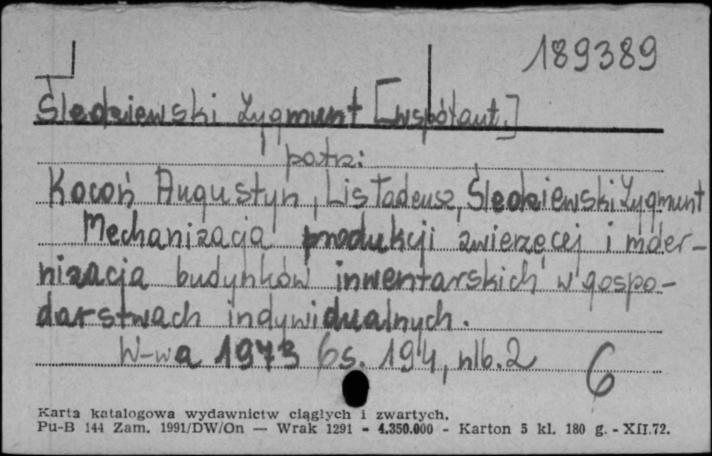 189389
Śledziewski Zygmunt [współaut.]
patrz:
Kocoń Augustyn, Lis Tadeusz, Śledziewski Zygmunt
Mechanizacja produkcji zwierzęcej i moder-
nizacja budynków inwentarskich w gospo-
darstwach indywidualnych.
W-wa 1973 s. 194, nlb. 2
6
Karta katalogowa wydawnictw ciągłych i zwartych.
Pu-B 144 Zam. 1991/DW/On — Wrak 1291 - 4.350.000 - Karton 5 kl. 180 g. - XII.72.